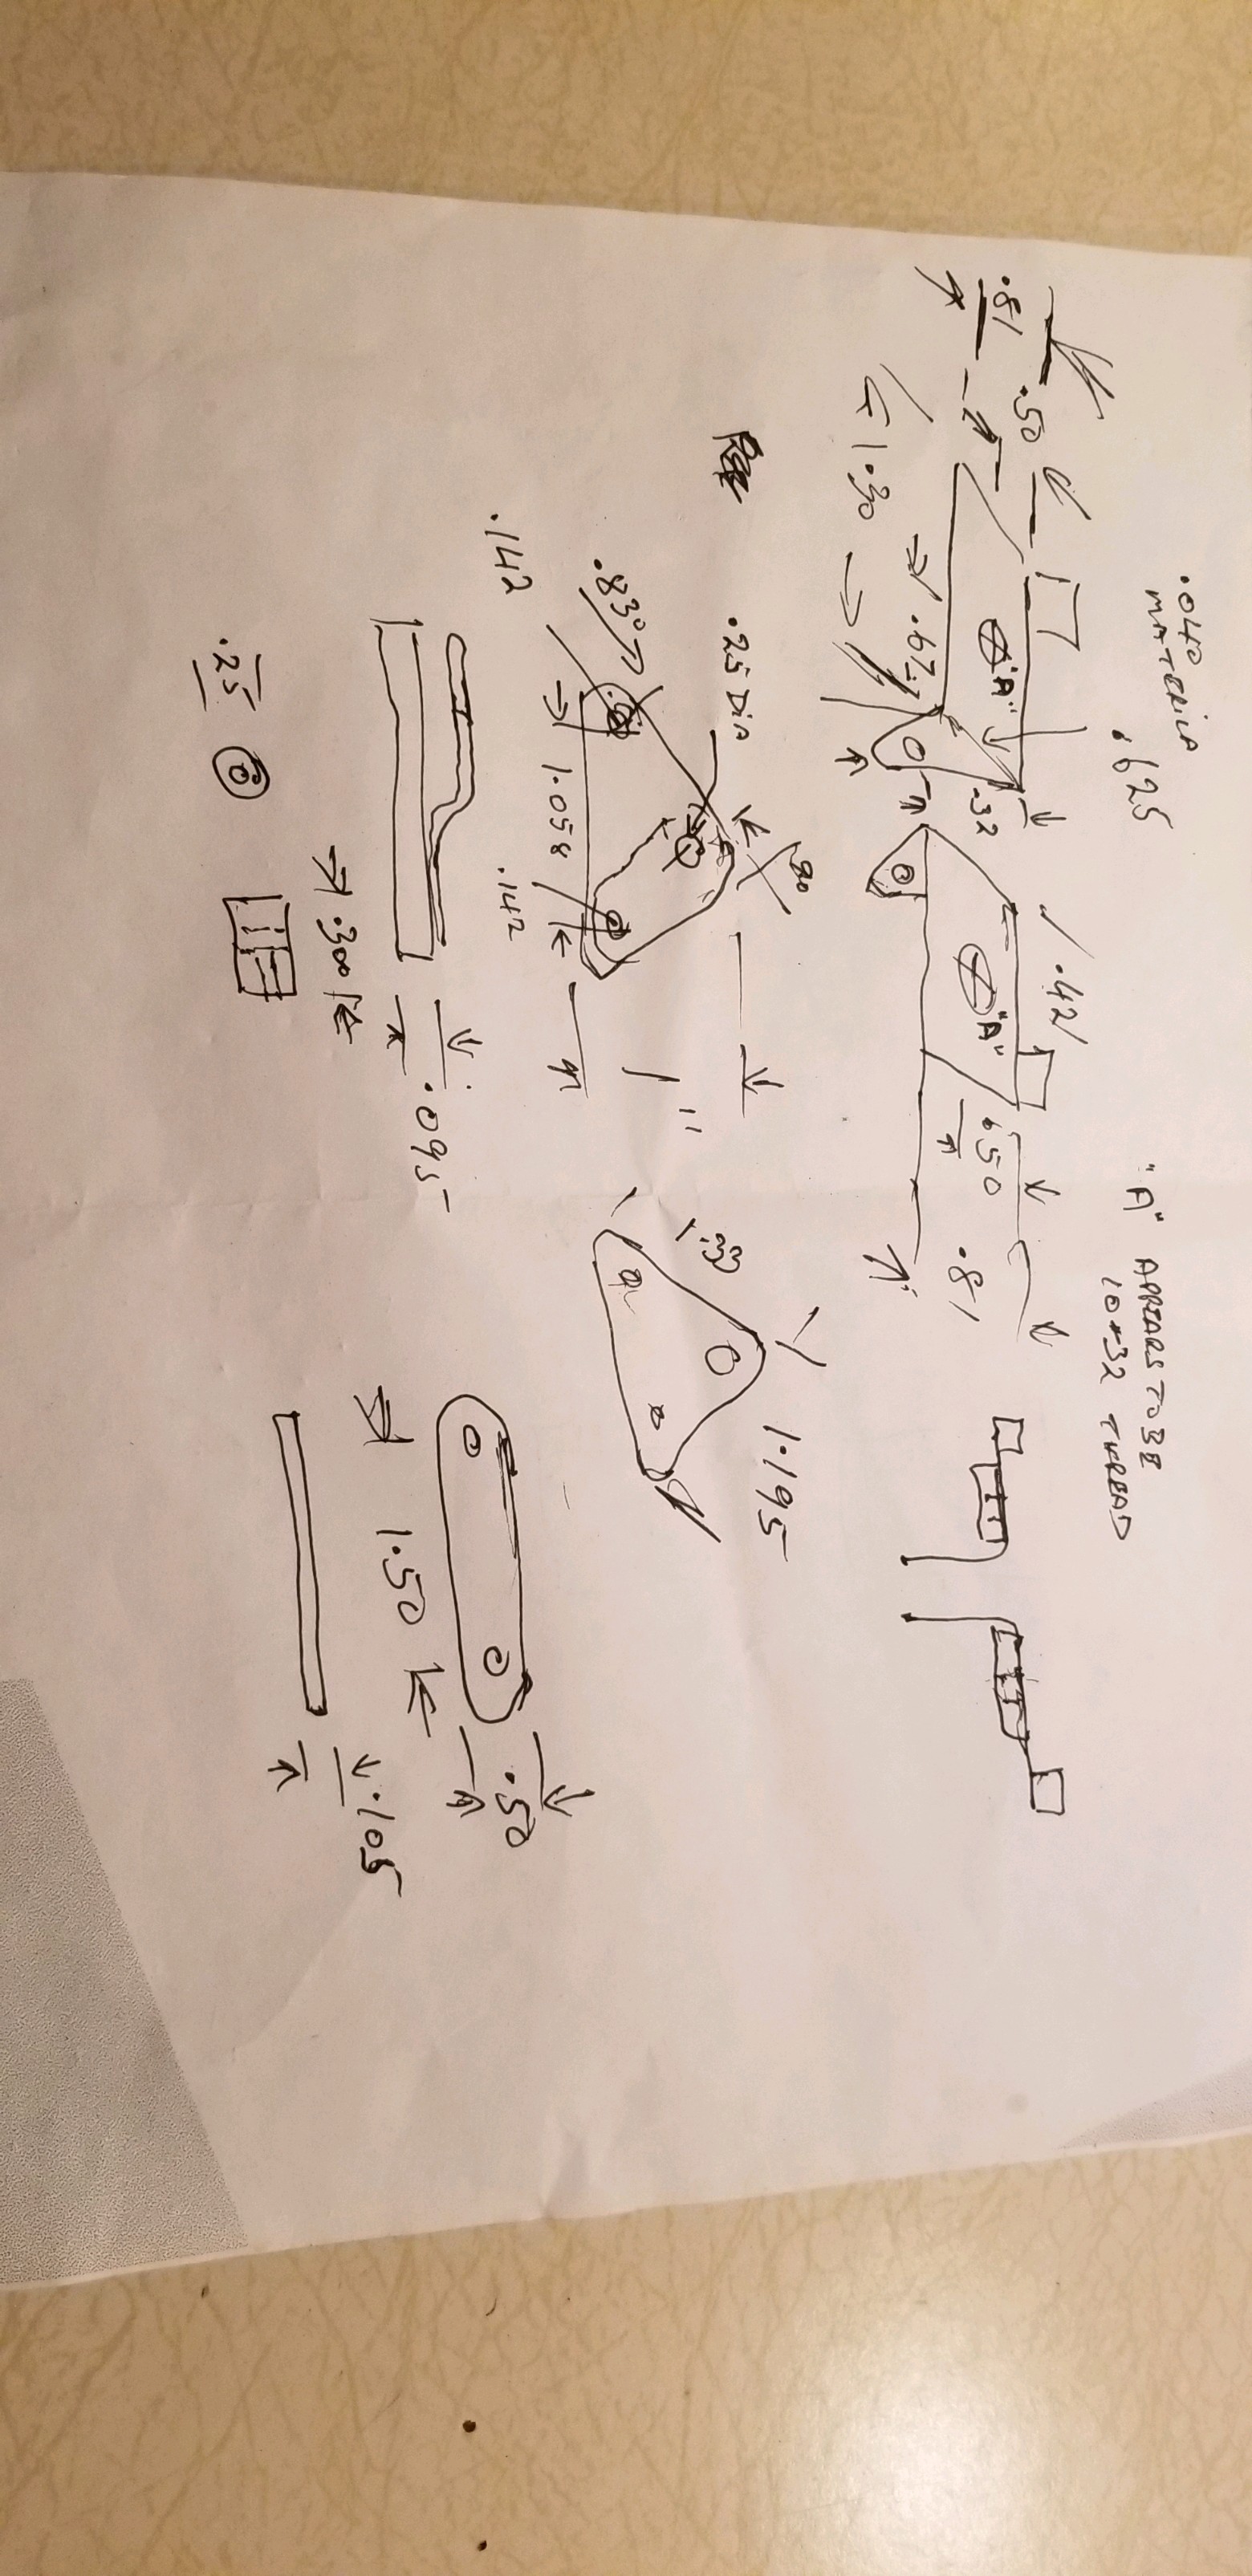 .040
MATERICA
.625
"A" APPEARS TO BE
10-32 THREAD
.81
.50
"A"
.67
.32
1.30
.42
"A"
.50
.81
.25 DIA
.830
.142
1.058
.142
1"
1.33
1.195
.095
.25
.300
1.50
.50
.105